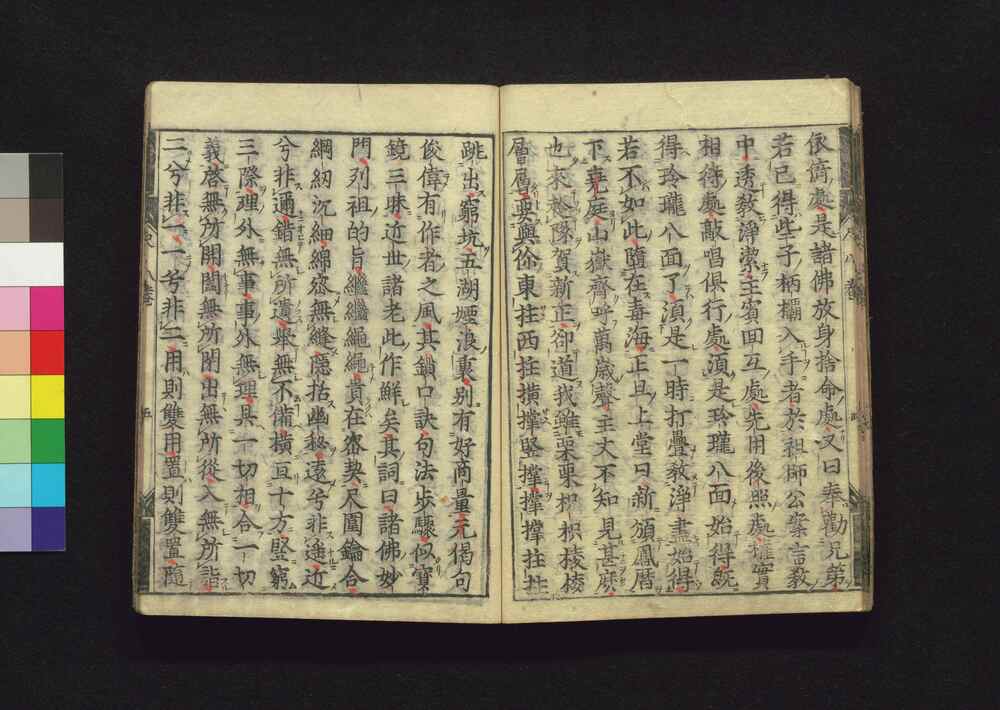 依倚處是諸佛放身捨命處又曰奉勸兄弟
若已得些子柄欛入手者於祖師公案言教
中透教淨潔主賓回互處先用後照處權實
相待處敲唱俱行處須是玲瓏八面始得旣
得玲瓏八面了須是一時打疊教淨盡始得
若不如此隨在毒海正旦上堂曰新頒鳳曆
下堯庭山嶽齊呼萬歲聲王丈不知見甚麼
也來趁隊賀新正卻道我雖栗栗枳枳棱棱
層層要與你東拄西拄橫撐竪撐撐撐拄拄
跳出窮坑五湖煙浪裏别有好商量元偈句
俊偉有作者之風其鎖口訣句法步驟似寶
鏡三昧近世諸老此作鮮矣其詞曰諸佛妙
門列祖的旨繼繼繩繩貴在密契尺圍鑰合
綱紉沉細綿密無縫隱括幽秘遠兮非遙近
兮非通錯無所遺擧無不備橫亘十方竪窮
三際理外無事事外無理具一切相合一切
義啓無所開闔無所閉出無所從入無所詣
二兮非一一兮非二用則雙用置則雙置隨